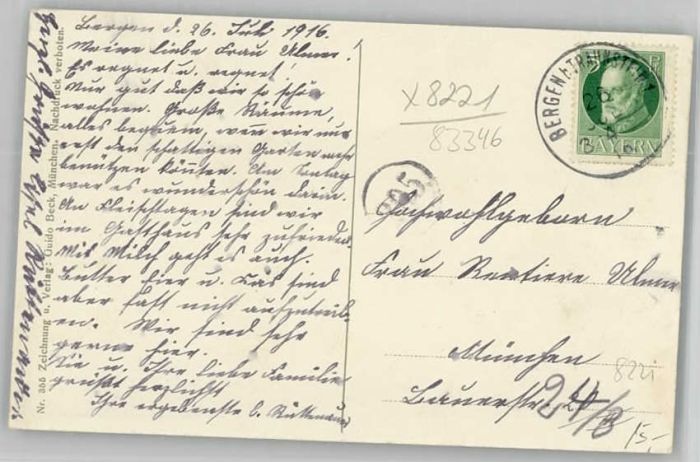 Bergen d. 26. Juli 1916.
Meine liebe Frau Ulmer!
Es regnet u. regnet!
Nur gut daß wir so schön
wohnen. Große Räume,
alles bequem, wenn wir nur
erst den schattigen Garten mehr
benützen könten. Am Sontag
war es wunderschön darin.
An Fleischtagen sind wir
im Gasthaus sehr zufrieden.
Mit Milch geht es auch.
Butter Eier u. Käs sind
aber fast nicht aufzutreib-
en. Wir sind sehr
gerne hier.
Sie u. Ihre liebe Familie
grüßt herzlichst
Ihre ergebenste
Nr. 355 Zeichnung u. Verlag: Guido Beck, München. Nachdruck verboten.
x8221
83346
BERGEN b. TRAUNSTEIN
BAYERN
Hochwohlgeborn
Frau Rentiere Ulmer
München
Bauerstr.
8221
15,-